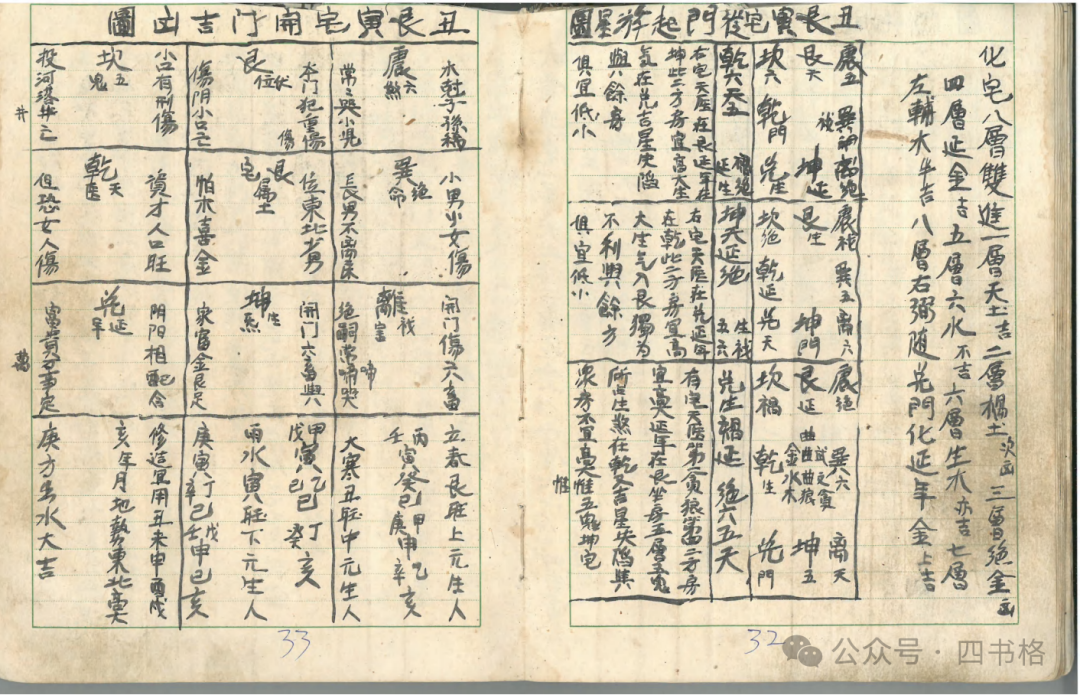 化宅八層雙進一層天土吉二層禍土次凶三層絕金凶
四層延金吉五層六水不吉六層生木亦吉七層
左輔木半吉八層右弼随兑門化延年金上吉
丑艮寅宅從門起遊星圖
震五 巽祸 離絕
艮天 坤延
坎六 乾門 兑生
乾六天五 禍絕延生
右宅天医在艮延年在
坤此二方房宜高大生
氣在兑吉星失陷
與餘房
俱宜低小
震祸 巽五 離六
艮生 坤門
坎絕 乾延 兑天
坤天延絕 生祸五六
右宅天医在兑延年
在乾此二方房宜高
大生气入艮獨为
不利與餘方
俱宜低小
震絕 巽六 離天
艮延 坤五
坎禍 乾生 兑門
金水木
兑生禍延 絕六五天
宜高延年在艮坐房五層五鬼
所占生煞在乾吉星失陷與
衆房不宜高惟五鬼坤宅
惟
32
丑艮寅宅開门吉凶圖
震六煞
木尅子孫稀
常哭小児
艮伏位
本门犯重傷
傷阴小口亡
坎五鬼
小口有刑傷
投河落井亡
井
巽絕命
小男少女傷
長男不离床
艮宅属土
位東北少男
怕木喜金
乾天医
資才人口旺
但恐女人傷
離祸害
開门傷六畜
絕嗣常啼哭
啼
坤生氣
開门六畜興
家富金艮足
兑延年
阴阳相配合
富貴萬事定
萬
立春艮旺上元生人
丙寅癸巳甲申乙亥
壬 庚 辛
大寒丑旺中元生人
甲寅乙巳丁亥
戊 己 癸
雨水寅旺下元生人
庚寅丁巳戊申己亥
辛 壬
修造宜用丑未申酉戌
亥年月地勢東北高
庚方出水大吉
33
公众号·四书格